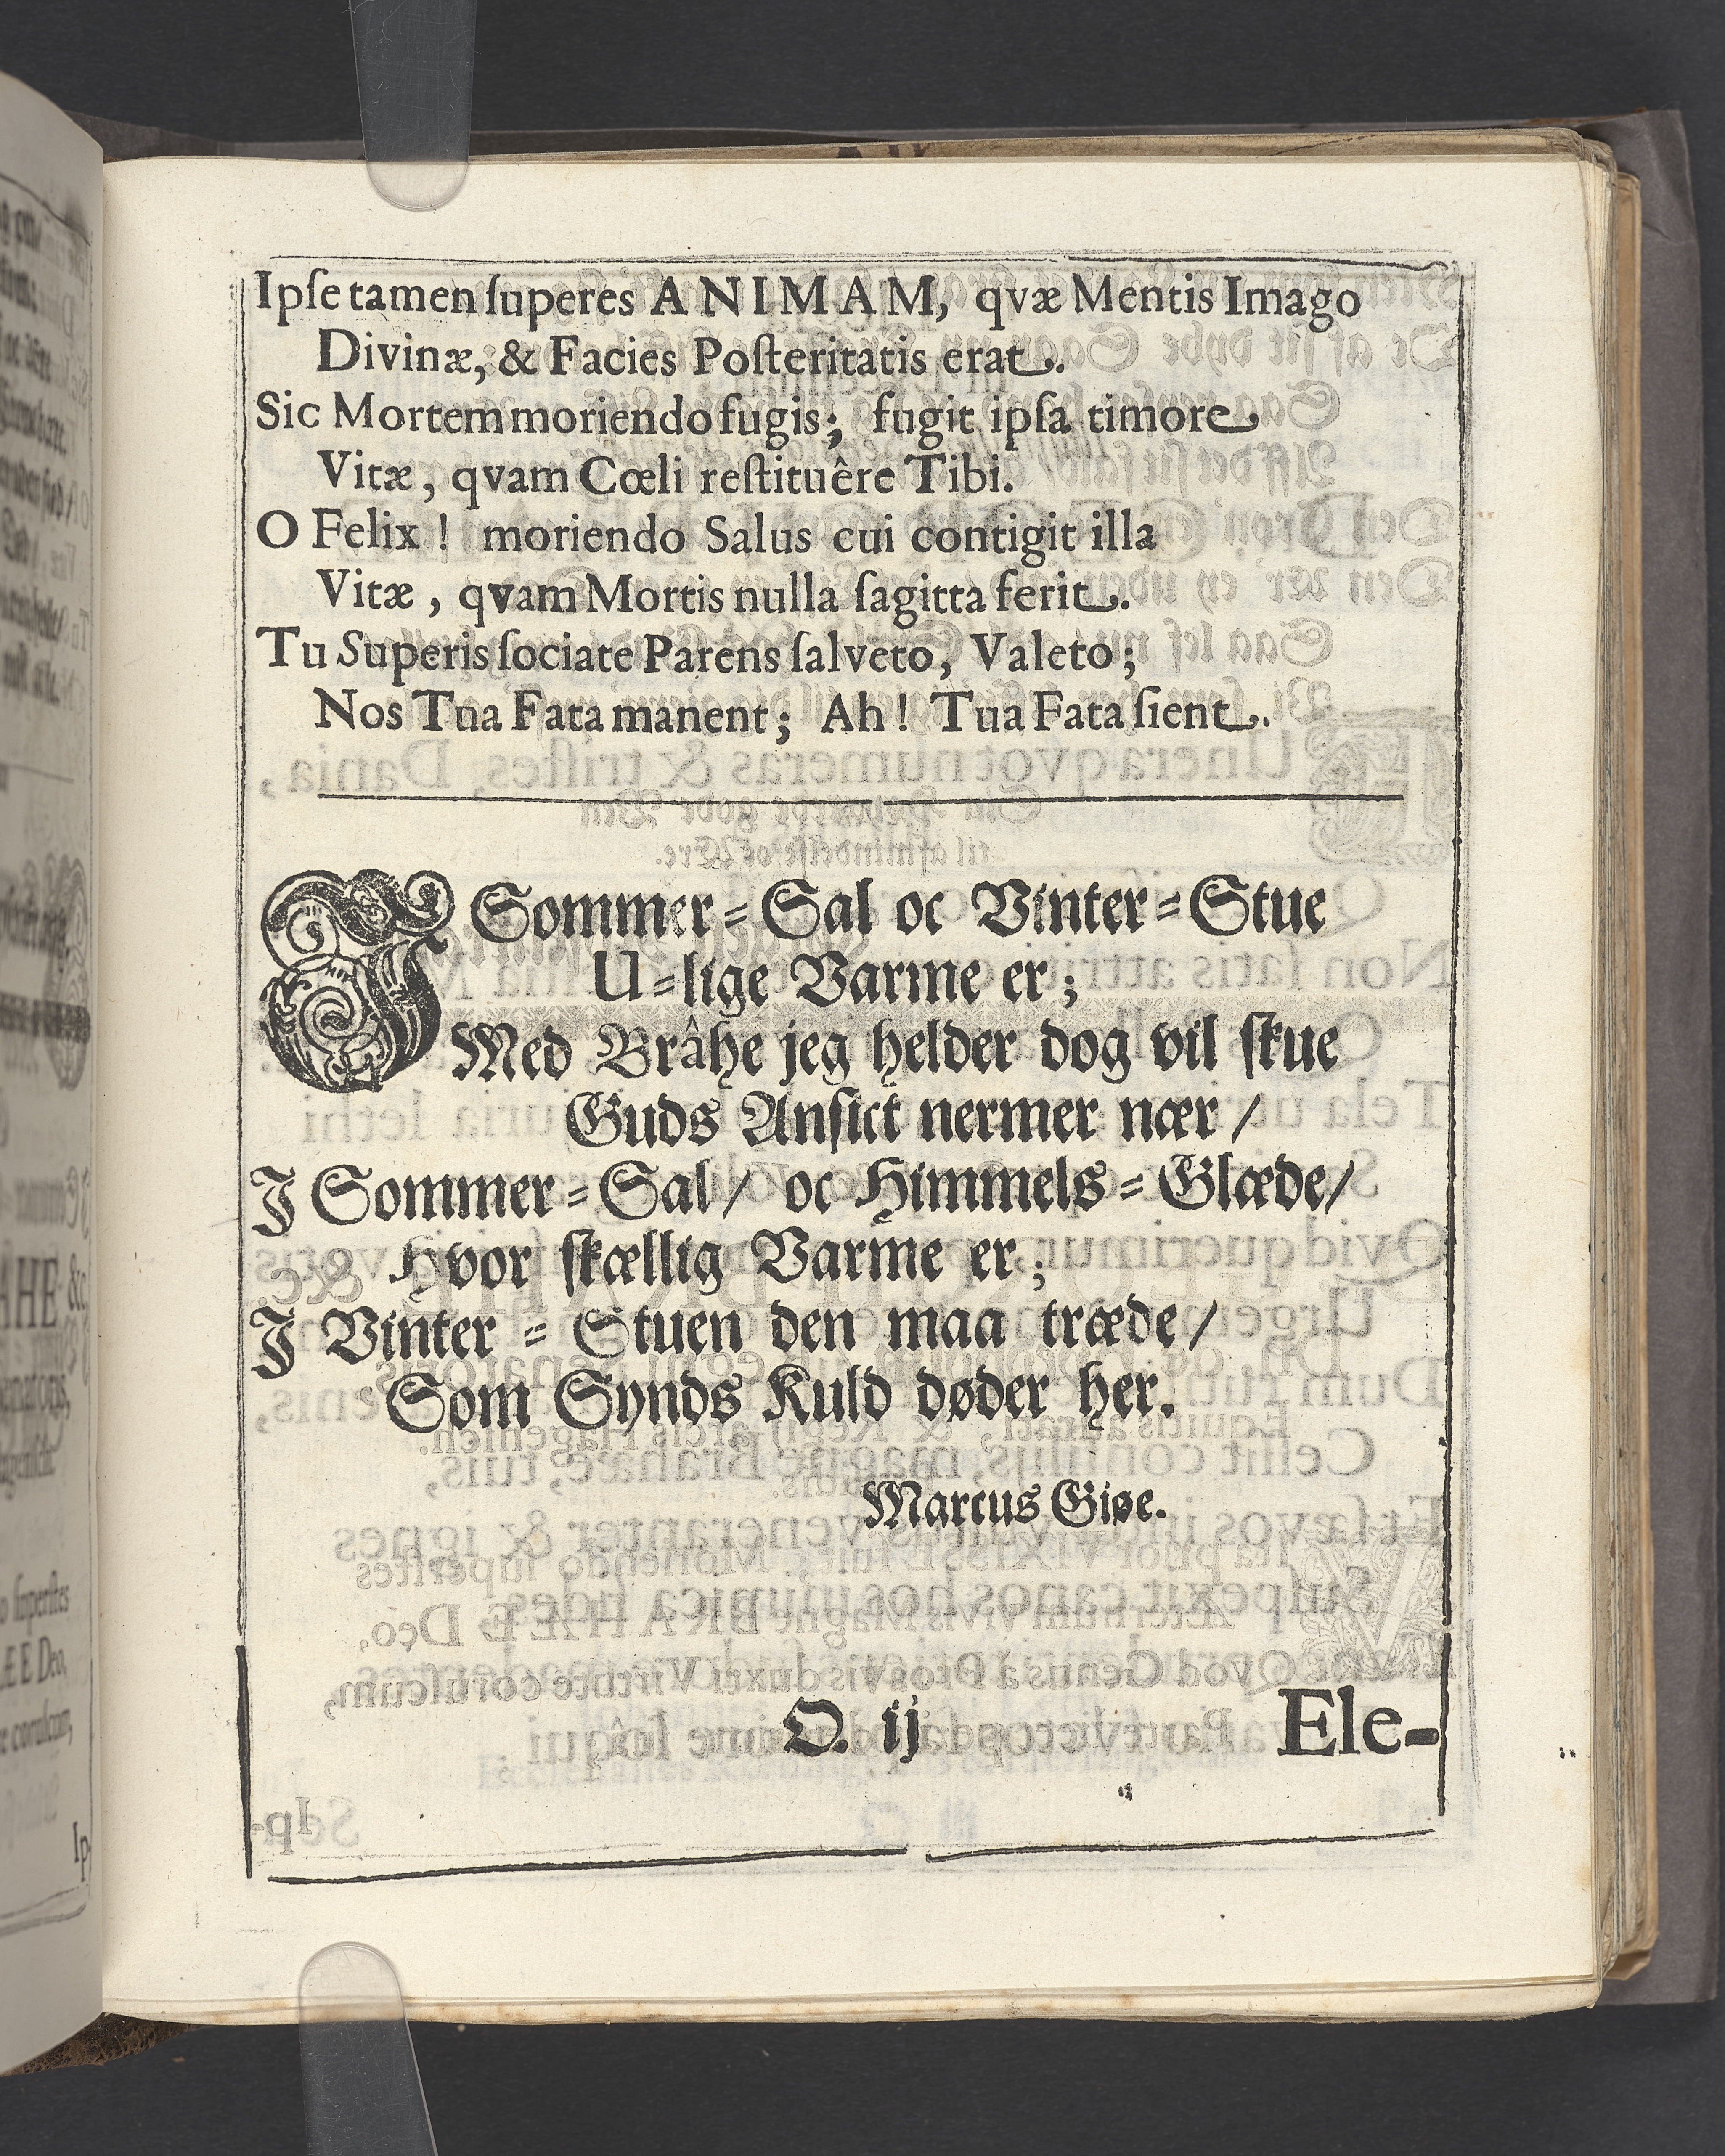 Ipſe tamen ſuperes ANIMAM, qvæ Mentis Imago
Divinæ, & Facies Poſteritatis erat.
Sic Mortem moriendo fugis; fugit ipſa timore
Vitæ, qvam Cœli reſtituêre Tibi.
O Felix! moriendo Salus cui contigit illa
Vitæ, qvam Mortis nulla ſagitta ferit.
Tu Superis ſociate Parens ſalveto, Valeto;
Nos Tna Fata manent; Ah! Tua Fata ſient.
I Sommer=Sal oc Vinter=Stue
U=lige Varme er;
Med Brâhe jeg helder dog vil ſkue
Guds Anſict nermer nær /
I Sommer=Sal / oc Himmels=Glæde /
Hvor ſkællig Varme er;
I Vinter=Stuen den maa træde /
Som Synds Kuld døder her.
Marcus Giøe.
O. ij Ele-